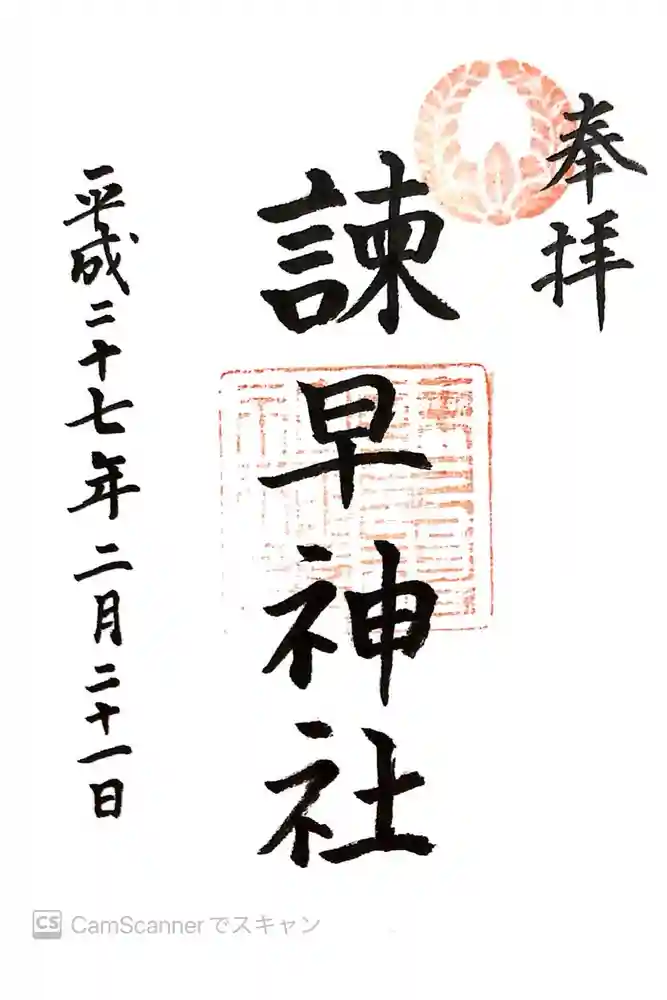 奉拝
諫早神社
平成二十七年二月二十一日
CS CamScannerでスキャン